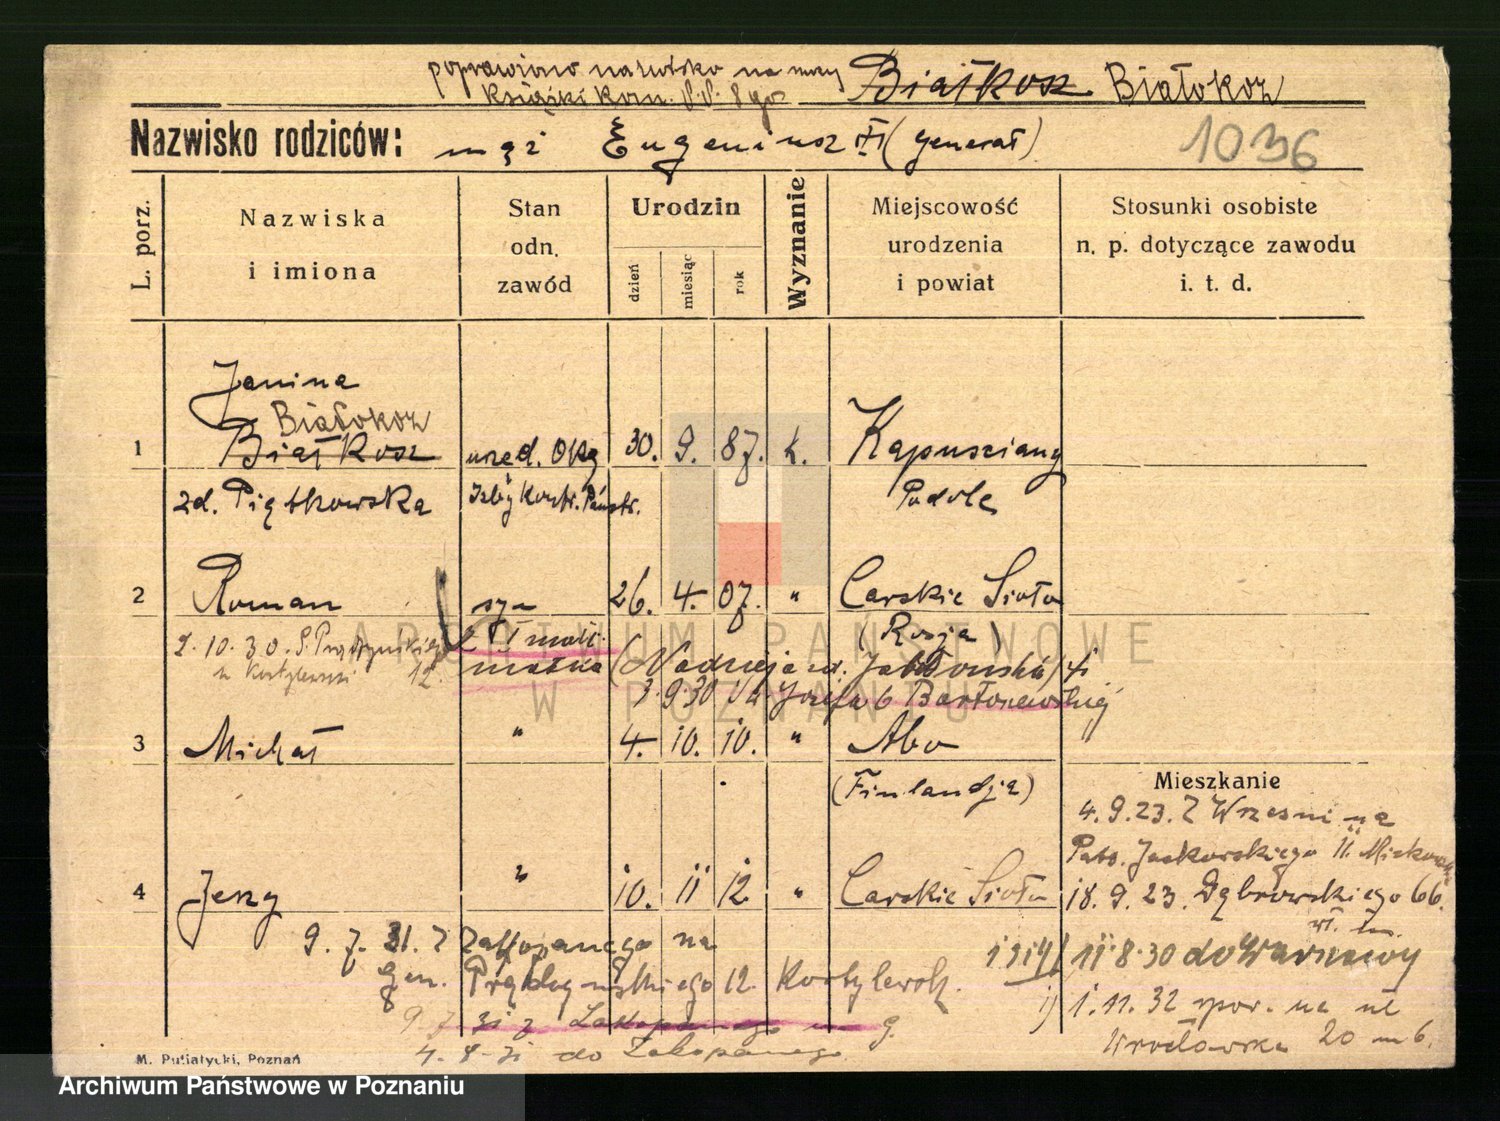 poprawiono nazwisko na mocy Białkosz Białokoz
Książki Kom.
1036
Nazwisko rodziców: mąż Eugeniusz (generał)
L. porz.
Nazwiska i imiona
Stan odn. zawód
Urodzin
dzień
miesiąc
rok
Wyznanie
Miejscowość urodzenia i powiat
Stosunki osobiste n. p. dotyczące zawodu i. t. d.
Janina
Białokoz
1 Białkosz urzęd. Okg 30. 9. 87. k. Kapusciany
zd. Piątkowska Izby Kontr. Państr. Podole
2 Roman syn 26. 4. 07. " Carskie Sioło
(Rosja)
2.10.30. 12
matka (Nadzieja zd. Jabłońska)
3.9.30 Józefa 6
3 Michał " 4. 10. 10. " Abo
(Finlandja)
Mieszkanie
4.9.23. Z Wrześni na
Jackowskiego II.
4 Jerzy " 10. 11 12. " Carskie Sioło
18.9.23. Dąbrowskiego 66.
9. 7. 31. Z Zakopanego na
11.8.30 do Warszawy
Gen. Prądzyńskiego 12
1.11.32 na ul
9 7 31 z Zakopanego
Wrocławska 20 m 6.
4-8-31 do Zakopanego
M. Putiatycki, Poznań
ARCHIWUM PAŃSTWOWE
W POZNANIU
Archiwum Państwowe w Poznaniu